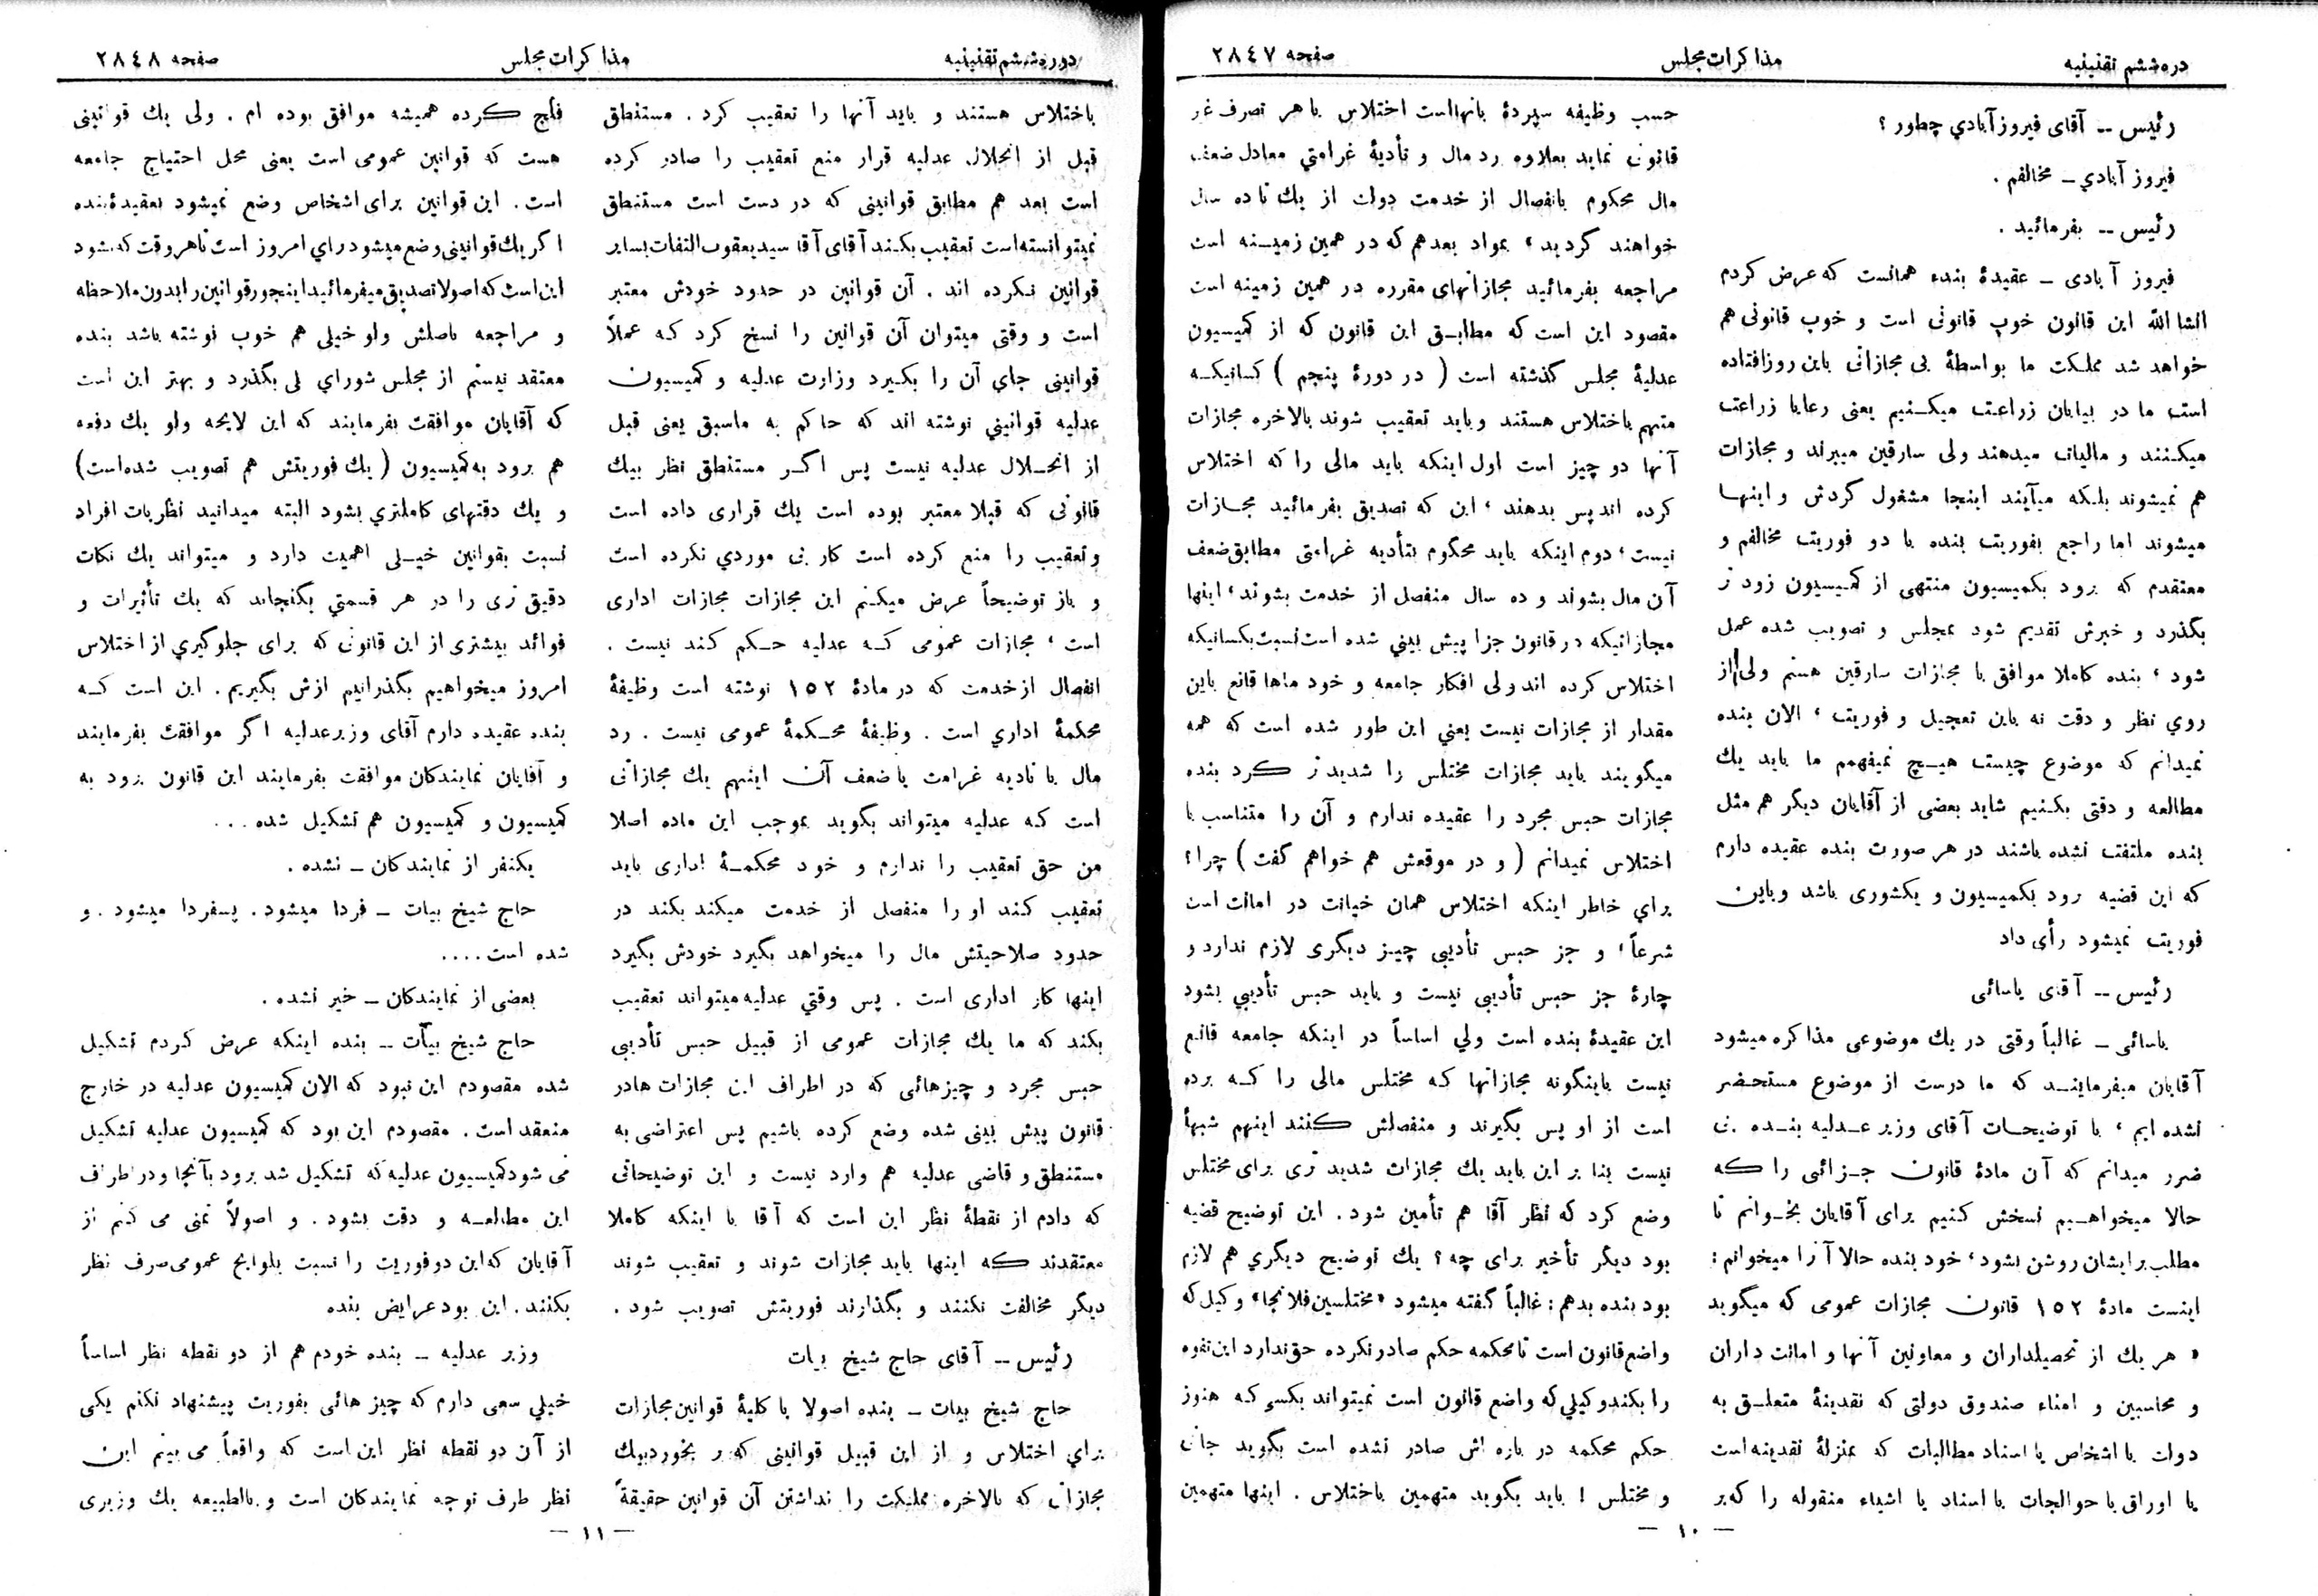 دوره ششم تقنینیه
مذاکرات مجلس
صفحه ۲۸٤۷
رئیس -- آقای فیروزآبادي چطور ؟
فیروز آبادي - مخالفم .
رئیس -- بفرمائید .
فیروز آبادی - عقیدهٔ بنده همانست که عرض کردم
انشاالله این قانون خوب قانونی است و خوب قانونی هم
خواهد شد مملکت ما بواسطهٔ بی مجازاتی باین روز افتاده
است ما در بیابان زراعت میکنیم یعنی رعایا زراعت
میکنند و مالیات میدهند ولی سارقین میبرند و مجازات
هم نمیشوند بلکه میآیند اینجا مشغول گردش و اینها
میشوند اما راجع بفوریت بنده با دو فوریت مخالفم و
معتقدم که برود بکمیسیون منتهی از کمیسیون زود تر
بگذرد و خبرش تقدیم شود بمجلس و تصویب شده عمل
شود ، بنده کاملا موافق با مجازات سارقین هستم ولی از
روي نظر و دقت نه باین تعجیل و فوریت ، الان بنده
نمیدانم که موضوع چیست هیچ نمیفهمم ما باید یك
مطالعه و دقتی بکنیم شاید بعضی از آقایان دیگر هم مثل
بنده ملتفت نشده باشند در هر صورت بنده عقیده دارم
که این قضیه رود بکمیسیون و یکشوری باشد و باین
فوریت نمیشود رأی داد
رئیس -- آقای یاسائی
یاسائی - غالباً وقتی در یك موضوعی مذاکره میشود
آقایان میفرمایند که ما درست از موضوع مستحضر
نشده ایم ، با توضیحات آقای وزیر عدلیه بنده بی
ضرر میدانم که آن مادهٔ قانون جزائی را که
حالا میخواهیم نسخش کنیم برای آقایان بخوانم تا
مطلب برایشان روشن بشود ، خود بنده حالا آنرا میخوانم :
اینست مادهٔ ۱٥۲ قانون مجازات عمومی که میگوید
« هر یك از تحصیلداران و معاونین آنها و امانت داران
و محاسبین و امناء صندوق دولتی که نقدینهٔ متعلق به
دولت یا اشخاص یا اسناد مطالبات که بمنزلهٔ نقدینه است
یا اوراق یا حوالجات یا اسناد یا اشیاء منقوله را که بر
حسب وظیفه سپردهٔ بآنها است اختلاس یا هر تصرف غیر
قانونی نماید بعلاوه رد مال و تأدیهٔ غرامتي معادل ضعف
مال محکوم بانفصال از خدمت دولت از یك تا ده سال
خواهند گردید ، بمواد بعدهم که در همین زمینه است
مراجعه بفرمائید مجازاتهای مقرره در همین زمینه است
مقصود این است که مطابق این قانون که از کمیسیون
عدلیهٔ مجلس گذشته است ( در دورهٔ پنجم ) کسانیکه
متهم باختلاس هستند و باید تعقیب شوند بالاخره مجازات
آنها دو چیز است اول اینکه باید مالی را که اختلاس
کرده اند پس بدهند ، این که تصدیق بفرمائید مجازات
نیست ، دوم اینکه باید محکوم بتأدیه غرامتی مطابق ضعف
آن مال بشوند و ده سال منفصل از خدمت بشوند ، اینها
مجازاتیکه در قانون جزا پیش بیني شده است نسبت بکسانیکه
اختلاس کرده اند ولی افکار جامعه و خود ماها قانع باین
مقدار از مجازات نیست یعني این طور شده است که همه
میگویند باید مجازات مختلس را شدید تر کرد بنده
مجازات حبس مجرد را عقیده ندارم و آن را متناسب با
اختلاس نمیدانم ( و در موقعش هم خواهم گفت ) چرا ؟
براي خاطر اینکه اختلاس همان خیانت در امانت است
شرعاً ، و جز حبس تأدیبی چیز دیگری لازم ندارد و
چارهٔ جز حبس تأدیبی نیست و باید حبس تأدیبي بشود
این عقیدهٔ بنده است ولي اساساً در اینکه جامعه قانع
نیست باینگونه مجازاتها که مختلس مالی را که برده
است از او پس بگیرند و منفصلش کنند اینهم شبههٔ
نیست بنا بر این باید یك مجازات شدید تری برای مختلس
وضع کرد که نظر آقا هم تأمین شود . این توضیح قضیه
بود دیگر تأخیر برای چه ؟ یك توضیح دیگري هم لازم
بود بنده بدهم : غالباً گفته میشود «مختلسین فلانجا» وکیل که
واضع قانون است تا محکمه حکم صادر نکرده حق ندارد این تفوه
را بکند وکیلي که واضع قانون است نمیتواند بکسی که هنوز
حکم محکمه در باره اش صادر نشده است بگوید جانی
و مختلس ! باید بگوید متهمین باختلاس . اینها متهمین
— ۱۰ —
دوره ششم تقنینیه
مذاکرات مجلس
صفحه ۲۸٤۸
باختلاس هستند و باید آنها را تعقیب کرد . مستنطق
قبل از انحلال عدلیه قرار منع تعقیب را صادر کرده
است بعد هم مطابق قوانینی که در دست است مستنطق
نمیتوانسته است تعقیب بکند آقای آقا سید یعقوب التفات بسایر
قوانین نکرده اند . آن قوانین در حدود خودش معتبر
است و وقتی میتوان آن قوانین را نسخ کرد که عملاً
قوانینی جاي آن را بگیرد وزارت عدلیه و کمیسیون
عدلیه قوانیني نوشته اند که حاکم به ماسبق یعنی قبل
از انحلال عدلیه نیست پس اگر مستنطق نظر بیك
قانونی که قبلا معتبر بوده است یك قراری داده است
و تعقیب را منع کرده است کار بی موردي نکرده است
و باز توضیحاً عرض میکنم این مجازات مجازات اداری
است ، مجازات عمومی که عدلیه حکم کند نیست .
انفصال از خدمت که در مادهٔ ۱٥۲ نوشته است وظیفهٔ
محکمهٔ اداري است . وظیفهٔ محکمهٔ عمومی نیست . رد
مال با تادیه غرامت یا ضعف آن اینهم یك مجازاتی
است که عدلیه میتواند بگوید بموجب این ماده اصلا
من حق تعقیب را ندارم و خود محکمهٔ اداری باید
تعقیب کند او را منفصل از خدمت میکند بکند در
حدود صلاحیتش مال را میخواهد بگیرد خودش بگیرد
اینها کار اداری است . پس وقتي عدلیه میتواند تعقیب
بکند که ما یك مجازات عمومی از قبیل حبس تأدیبی
حبس مجرد و چیزهائی که در اطراف این مجازات ها در
قانون پیش بینی شده وضع کرده باشیم پس اعتراضی به
مستنطق و قاضی عدلیه هم وارد نیست و این توضیحاتی
که دادم از نقطهٔ نظر این است که آقا با اینکه کاملا
معتقدند که اینها باید مجازات شوند و تعقیب شوند
دیگر مخالفت نکنند و بگذارند فوریتش تصویب شود .
رئیس -- آقای حاج شیخ بیات
حاج شیخ بیات - بنده اصولا با کلیهٔ قوانین مجازات
براي اختلاس و از این قبیل قوانینی که بر بخورد بیك
مجازاتی که بالاخره مملکت را نداشتن آن قوانین حقیقةً
فلج کرده همیشه موافق بوده ام . ولی یك قوانینی
هست که قوانین عمومی است یعنی محل احتیاج جامعه
است . این قوانین برای اشخاص وضع نمیشود بعقیدهٔ بنده
اگر یك قوانینی وضع میشود براي امروز است تا هر وقت که بشود
این است که اصولا تصدیق میفرمائید اینجور قوانین را بدون ملاحظه
و مراجعه باصلش ولو خیلی هم خوب نوشته باشد بنده
معتقد نیستم از مجلس شوراي ملی بگذرد و بهتر این است
که آقایان موافقت بفرمایند که این لایحه ولو یك دفعه
هم برود به کمیسیون ( یك فوریتش هم تصویب شده است )
و یك دقتهای کاملتری بشود البته میدانید نظریات افراد
نسبت بقوانین خیلی اهمیت دارد و میتواند یك نکات
دقیق تری را در هر قسمتي بگنجاند که یك تأثیرات و
فوائد بیشتری از این قانونی که برای جلوگیري از اختلاس
امروز میخواهیم بگذرانیم ازش بگیریم . این است که
بنده عقیده دارم آقای وزیر عدلیه اگر موافقت بفرمایند
و آقایان نمایندکان موافقت بفرمایند این قانون برود به
کمیسیون و کمیسیون هم تشکیل شده ...
یکنفر از نمایندکان - نشده .
حاج شیخ بیات - فردا میشود . پسفردا میشود . و
شده است ....
بعضی از نمایندکان - خیر نشده .
حاج شیخ بیات -- بنده اینکه عرض کردم تشکیل
شده مقصودم این نبود که الان کمیسیون عدلیه در خارج
منعقد است . مقصودم این بود که کمیسیون عدلیه تشکیل
می شود کمیسیون عدلیه که تشکیل شد برود بآنجا و در اطراف
این مطالعه و دقت بشود . و اصولاً تمنی می کنم از
آقایان که این دو فوریت را نسبت بلوایح عمومی صرف نظر
بکنند . این بود عرایض بنده
وزیر عدلیه - بنده خودم هم از دو نقطه نظر اساساً
خیلي سعی دارم که چیز هائی بفوریت پیشنهاد نکنم یکی
از آن دو نقطه نظر این است که واقعاً می بینم این
نظر طرف توجه نمایندکان است و بالطبیعه یك وزیری
— ۱۱ —